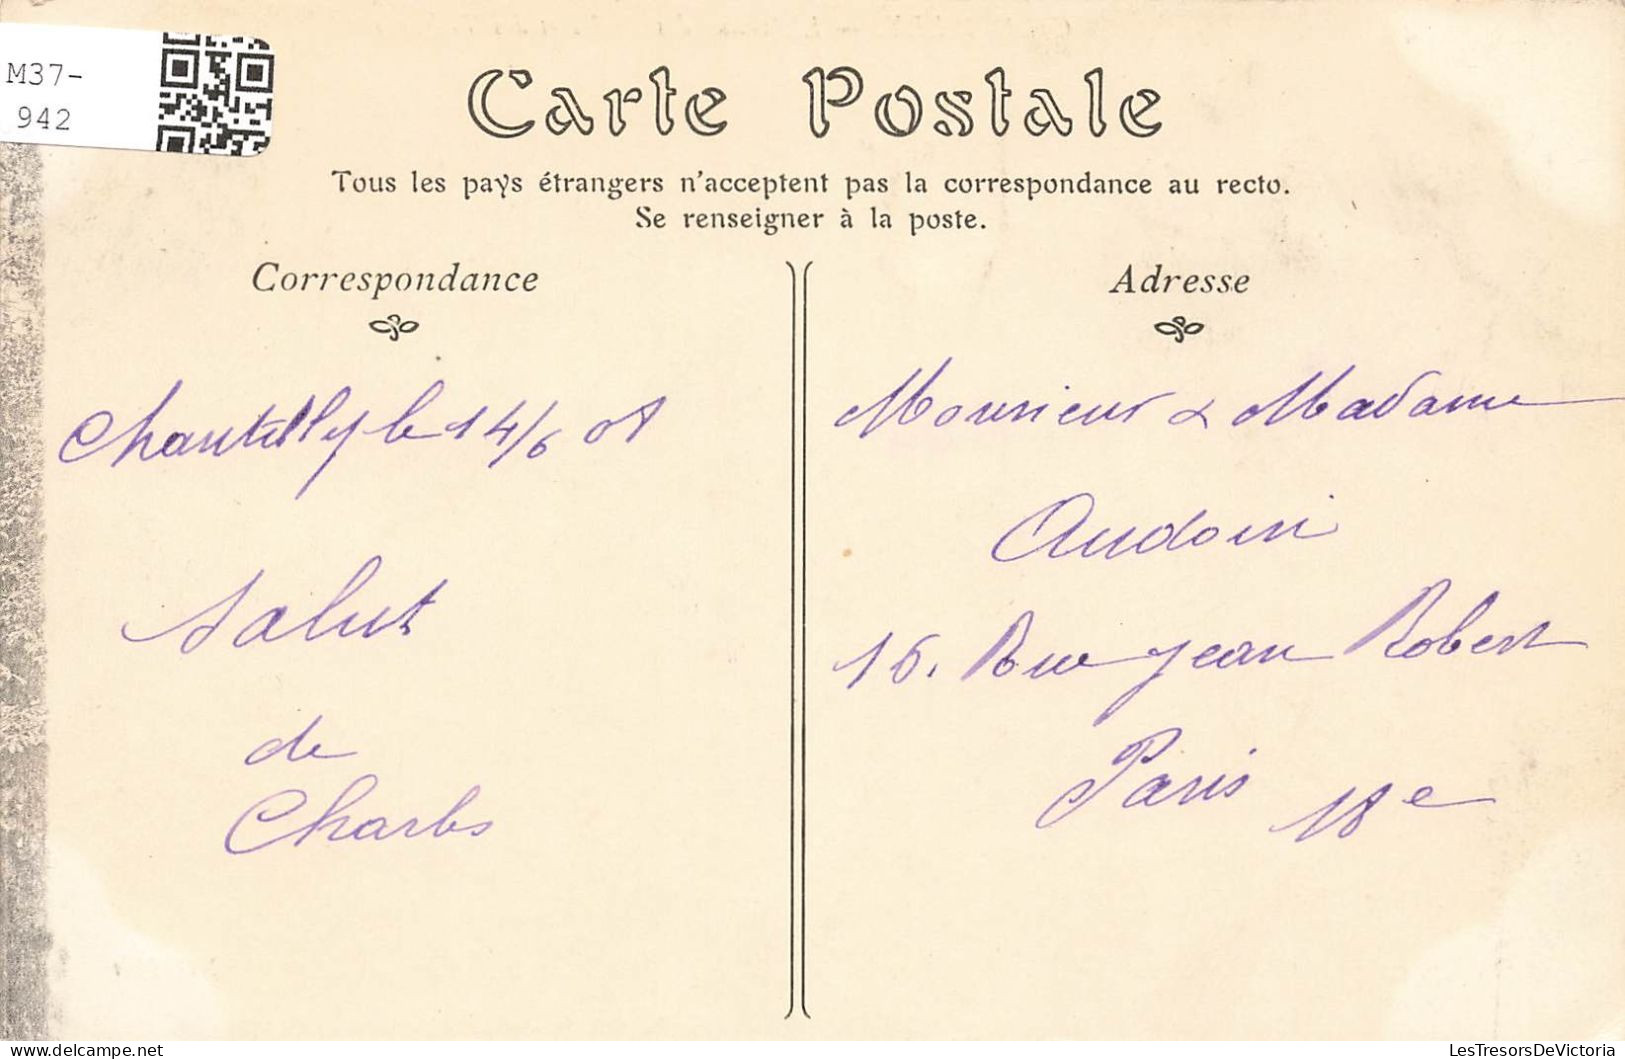 M37-
942
Carte Postale
Tous les pays étrangers n'acceptent pas la correspondance au recto.
Se renseigner à la poste.
Correspondance
Chantilly le 14/6
Salut
de
Charles
Adresse
Monsieur & Madame
Audoin
16. Rue Jean Robert
Paris 18e
LesTresorsDeVictoria
delcampe.net